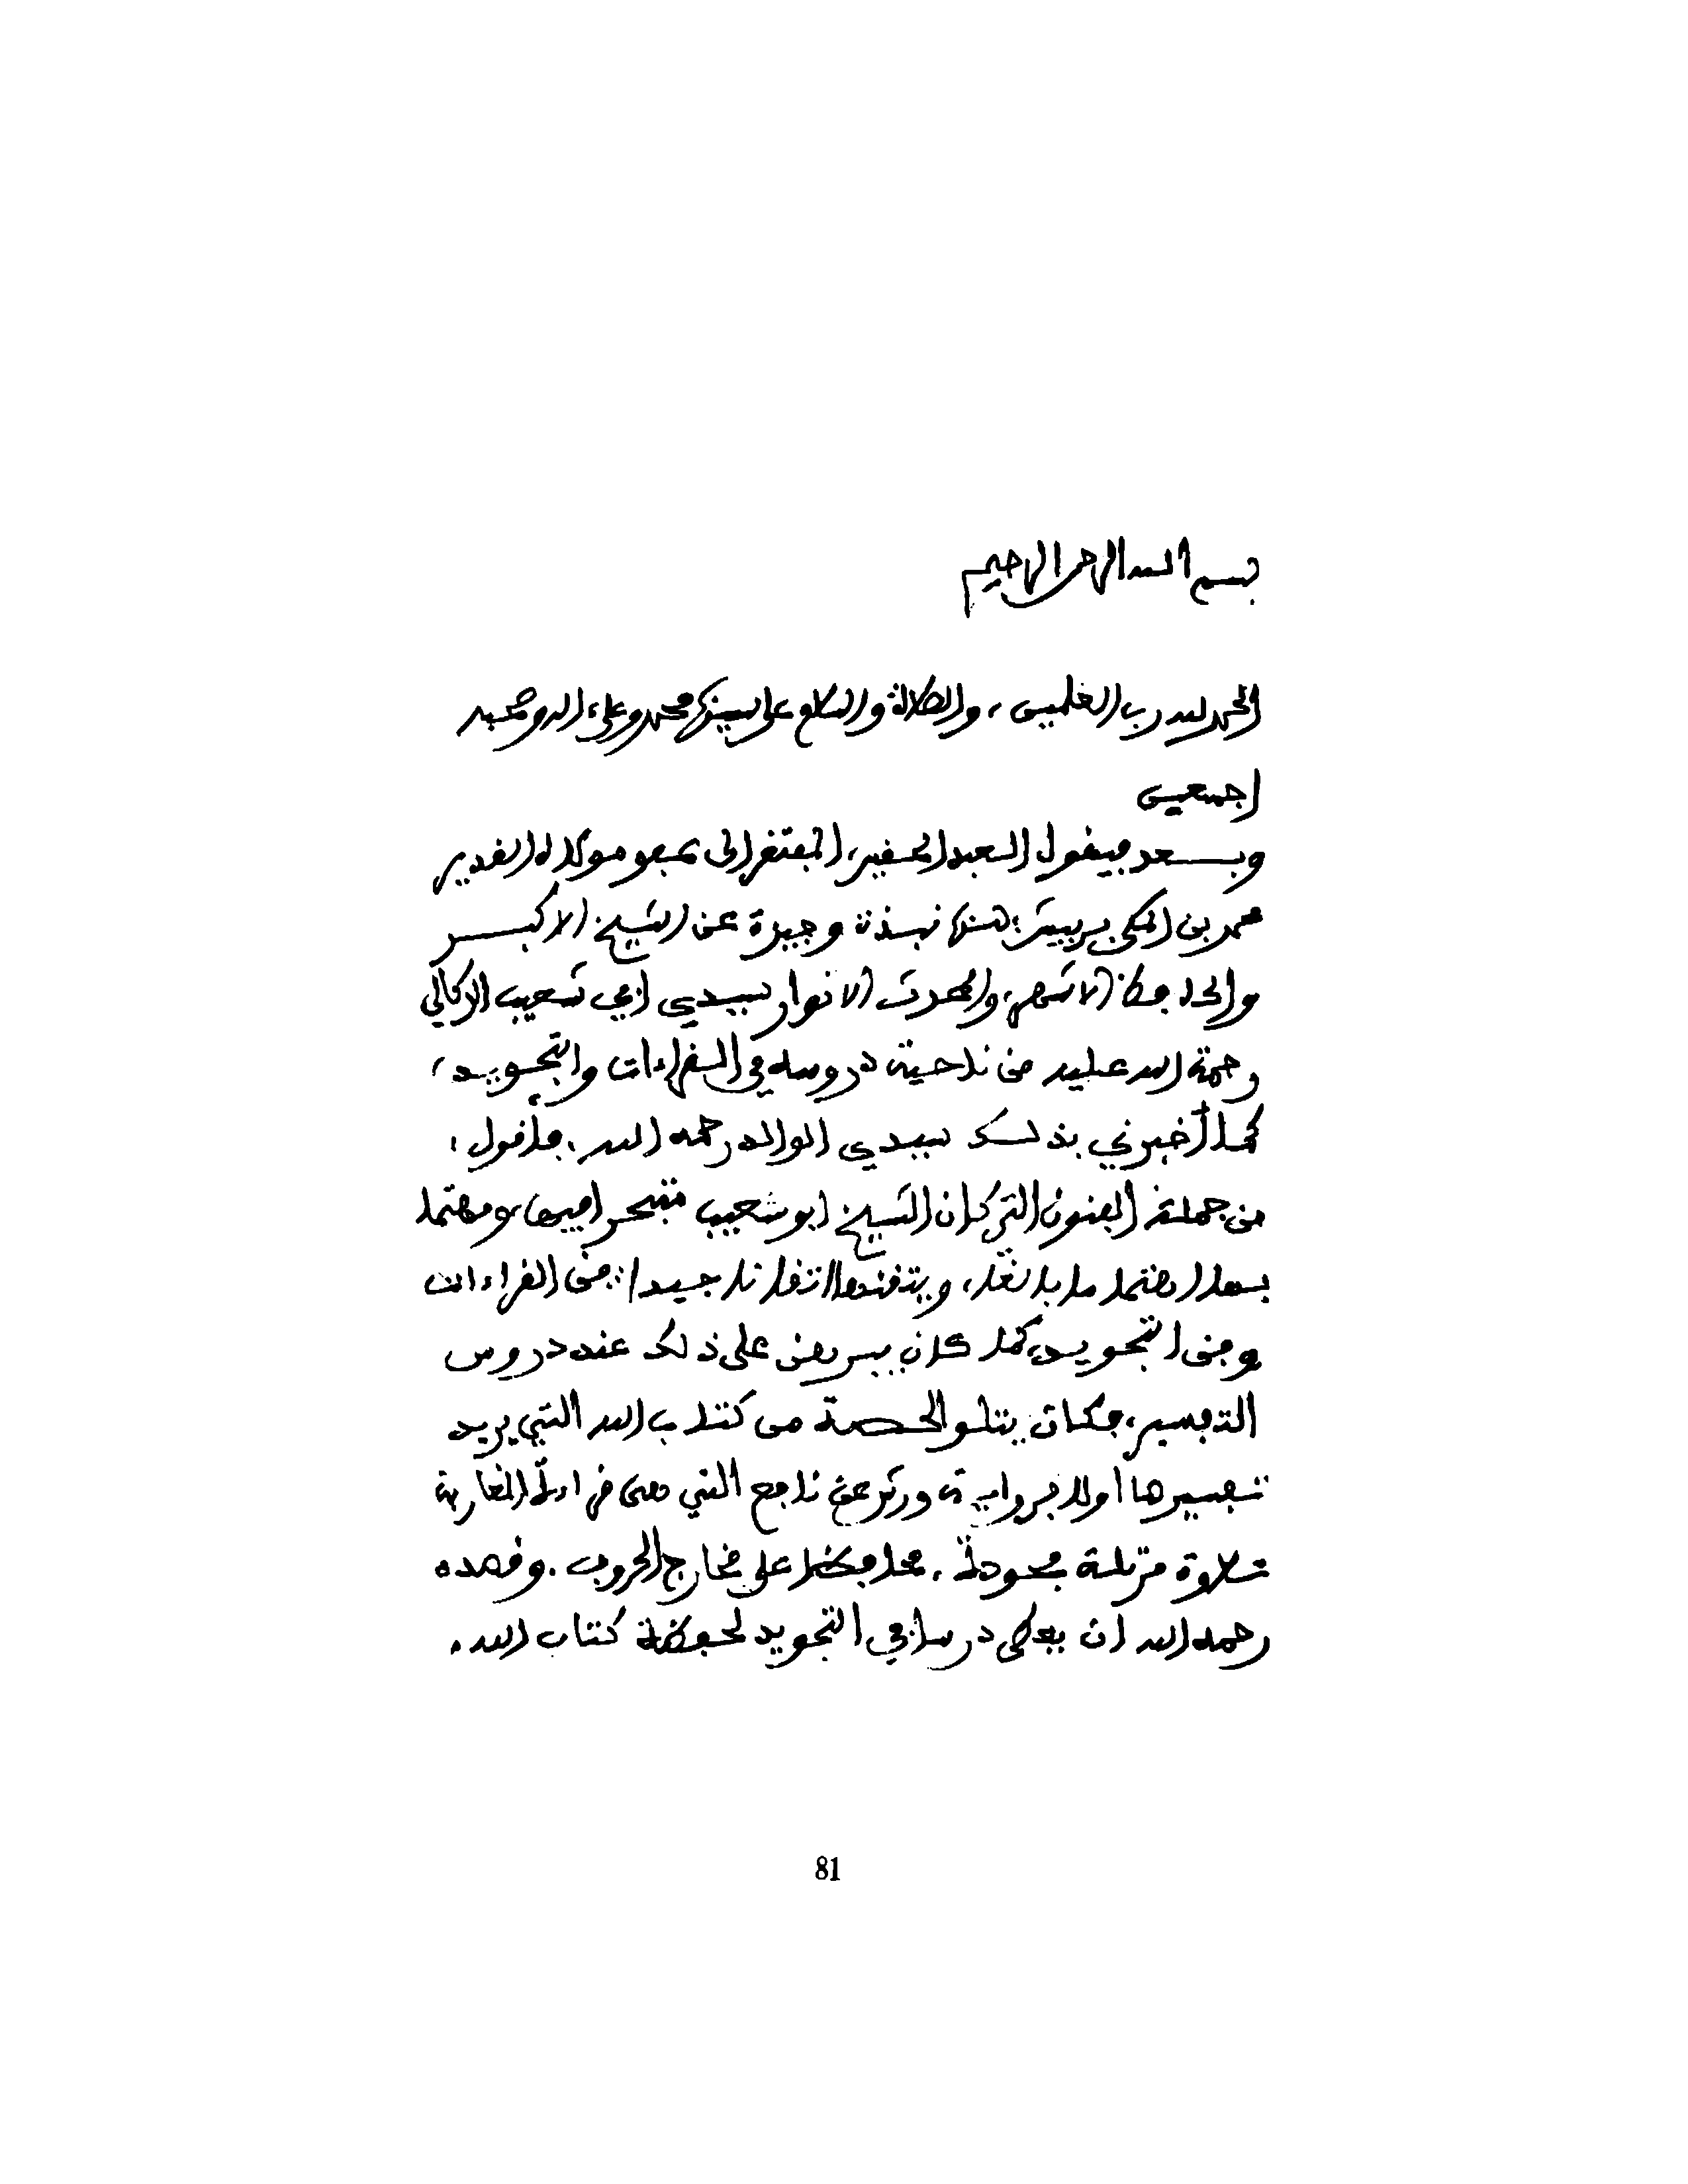 بسم الله الرحمن الرحيم
الحمد لله رب العلمين، والصلاة والسلام على سيدنا محمد وعلى ءاله وصحبه
اجمعين
وبعد فيقول العبد الحقير، المفتقر الى عفو مولاه القدير
محمد بن المكي بربيش: هذه نبذة وجيزة عن الشيخ الاكبر
والحافظ الاشهر، والمحدث الانوار سيدي ابي شعيب الدكالي
رحمة الله عليه من ناحية دروسه في القراءات والتجويد،
كما أخبرني بذلك سيدي الوالد رحمه الله. فأقول:
من جملة الفنون التي كان الشيخ ابو شعيب متبحرا فيها، ومهتما
بها اهتماما بالغا، ويتقنها اتقانا جيدا: فن القراءات
وفن التجويد، كما كان يبرهن على ذلك عند دروس
التفسير، فكان يتلو الحصة من كتاب الله التي يريد
تفسيرها اولا برواية ورش عن نافع التي هي قراءة المغاربة
تلاوة مرتلة مجودة، محافظا على مخارج الحروف. وقصده
رحمه الله ان يعطى درسا في التجويد لحفظة كتاب الله.
81